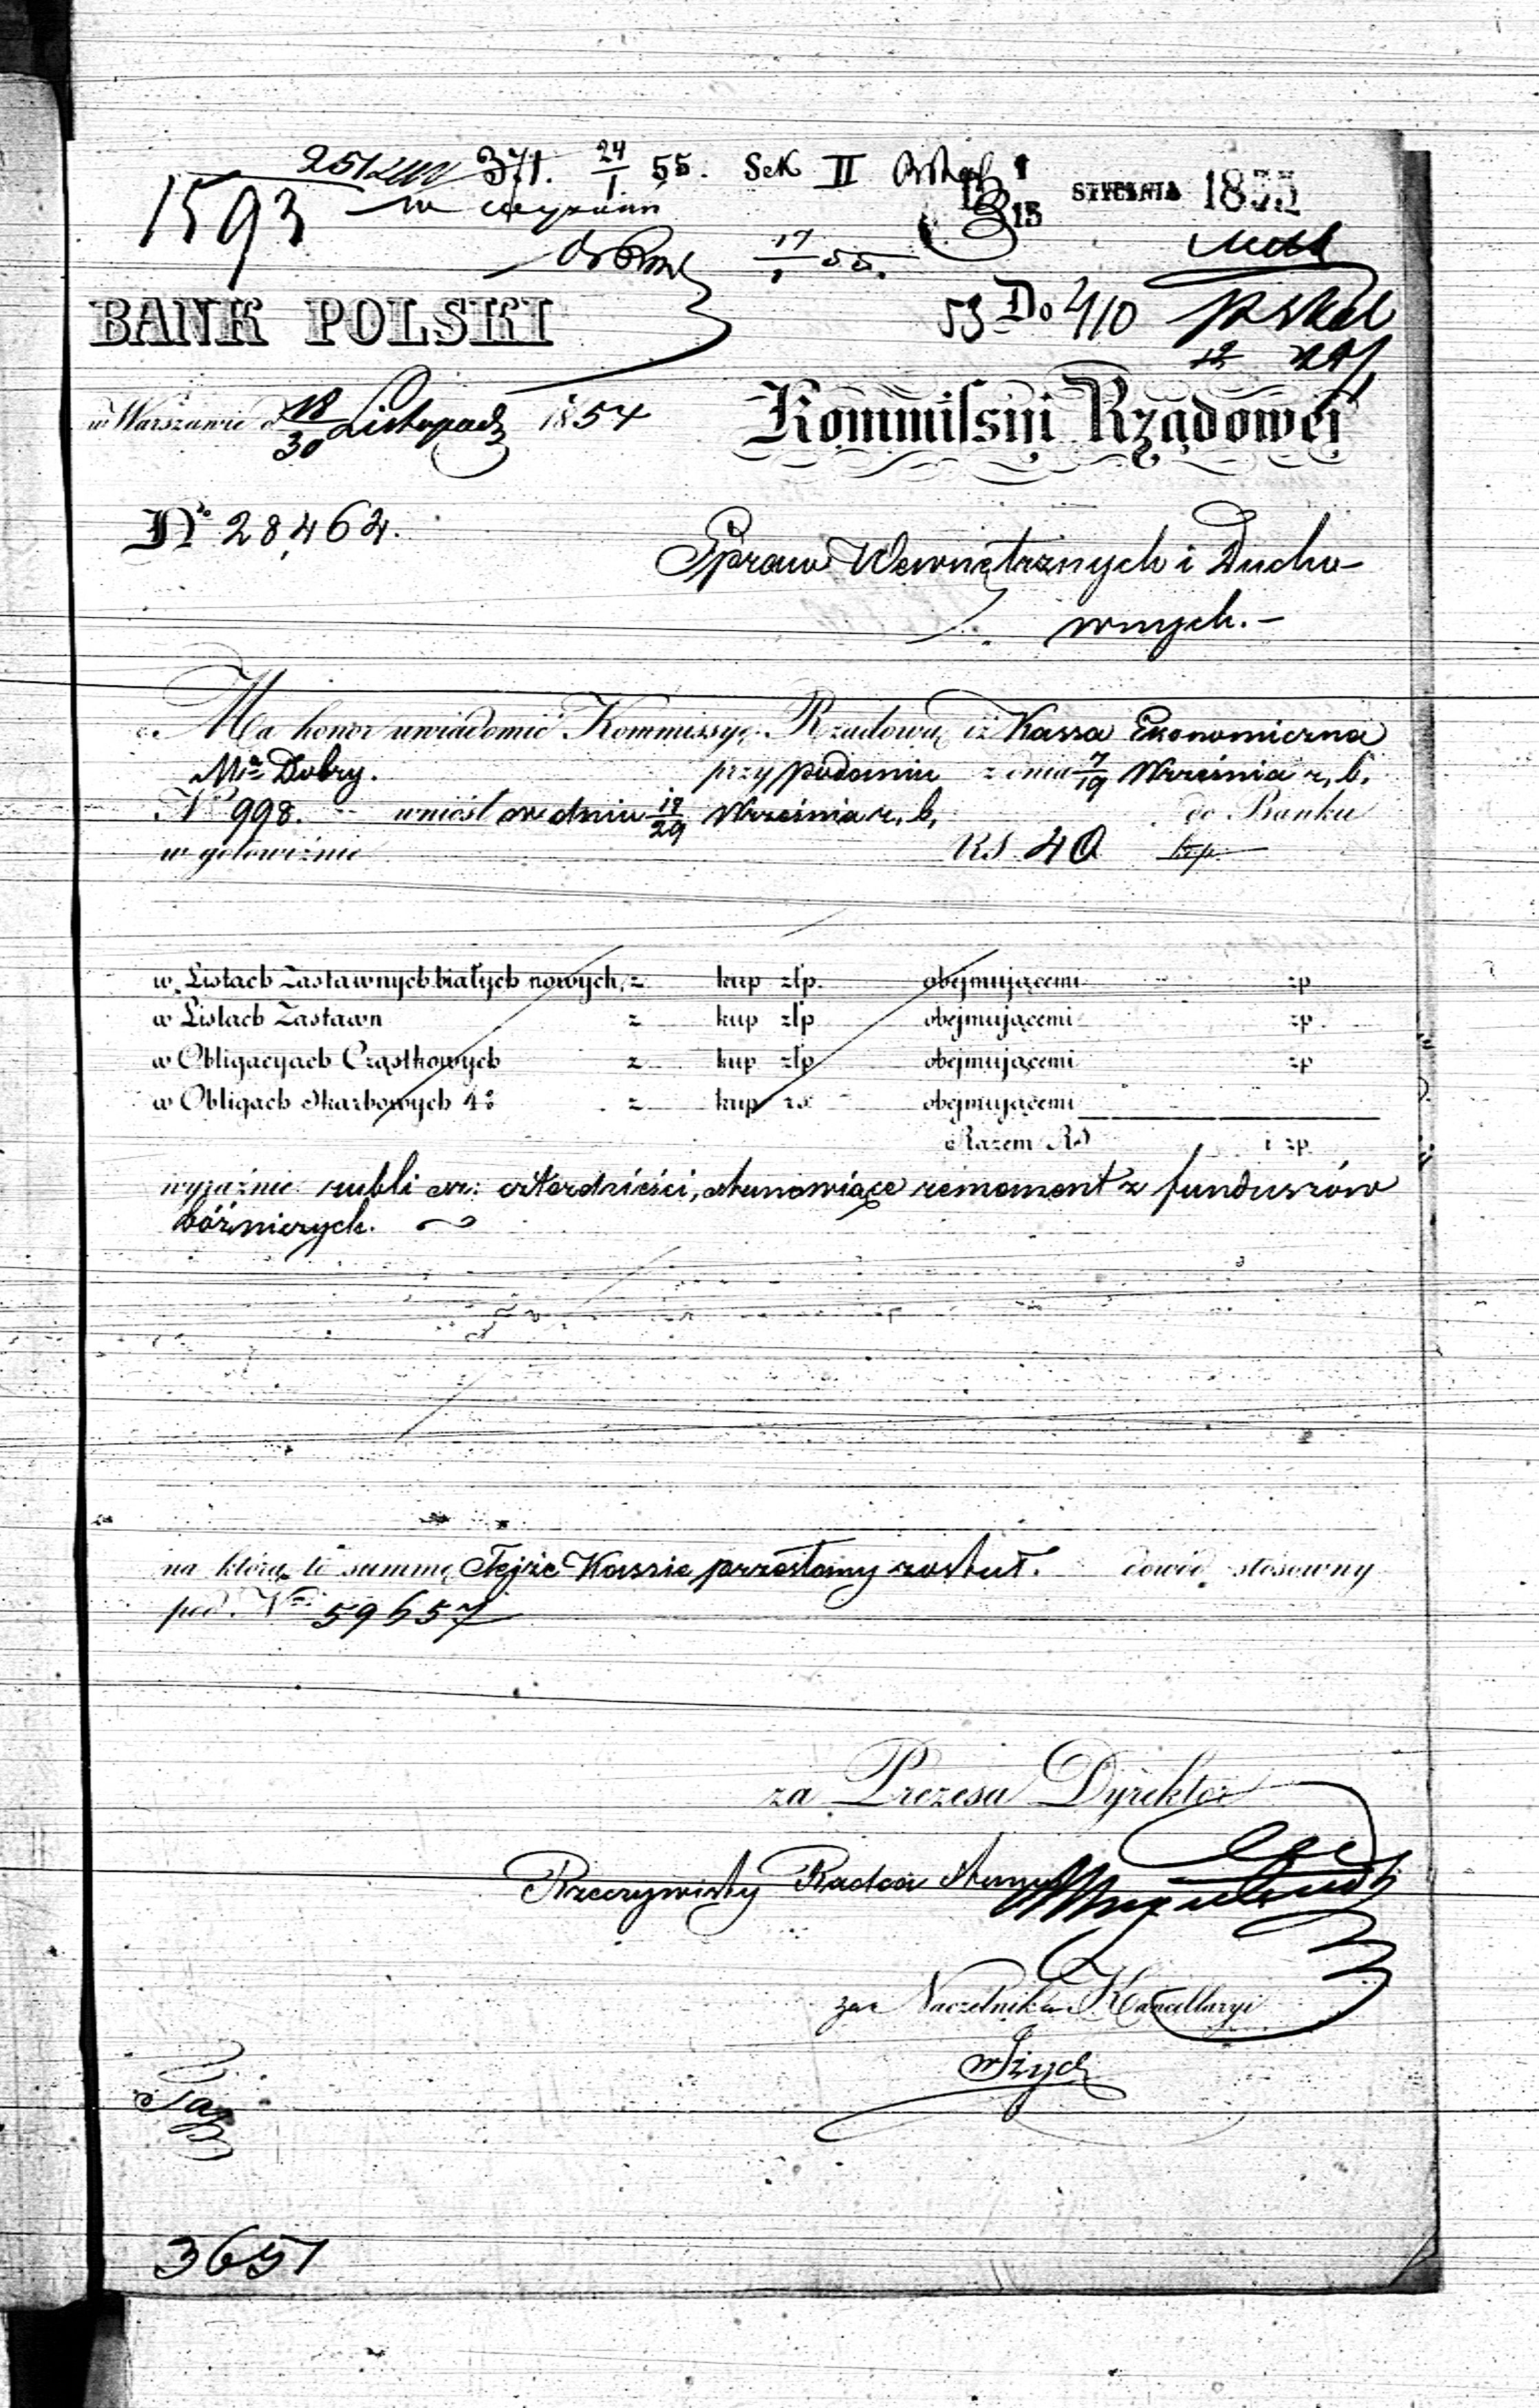 371. 24/1 55. Sek II STYCZNIA 1855
1593
17/1 55.
BANK POLSKI
53 Do 410
w Warszawie d 18/30 Listopada 1854
Kommissyi Rządowej
No 28,464.
Spraw Wewnętrznych i Ducho-
wnych.-
Ma honor uwiadomić Kommissyę Rządową iż Kassa Ekonomiczna
Mta Dobry. przy podaniu z dnia 7/19 Września r. b.
N 998. wniósł w dniu 17/29 Września r. b. do Banku
w gotowiźnie RS. 40 kop.
w Listach Zastawnych białych nowych, z kup złp. obejmującemi zp
w Listach Zastawn z kup złp obejmującemi zp.
w Obligacyach Cząstkowych z kup złp obejmującemi zp
w Obligach Skarbowych 4% z kup rs. obejmującemi
Razem RS i zp
wyraźnie rubli sr: czterdzieści, stanowiące remanent z funduszów
bóżniczych.
na którą to summę Tejże Kassie przesłany został. dowód stosowny
pod. Nrm 59657
za Prezesa Dyrektor
Rzeczywisty Radca Stanu
za Naczelnika Kancellaryi
3651